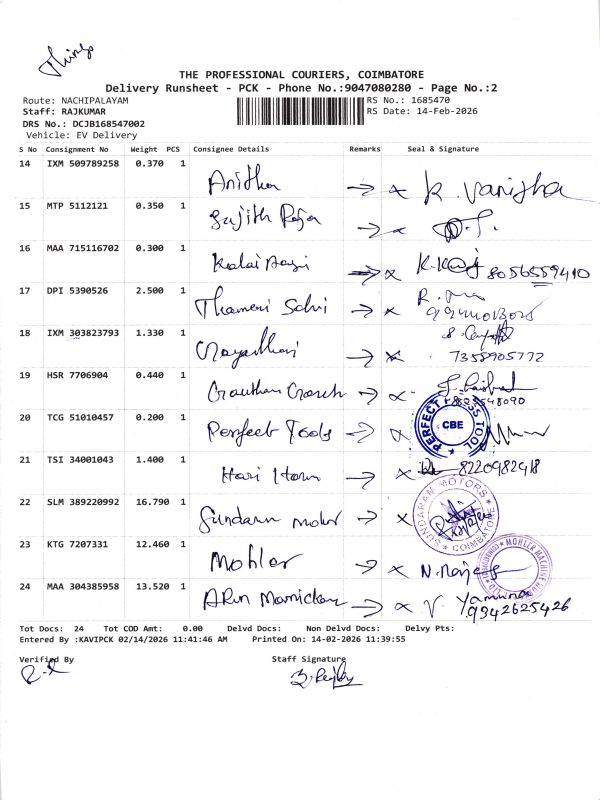 Things
THE PROFESSIONAL COURIERS, COIMBATORE
Delivery Runsheet - PCK - Phone No.:9047080280 - Page No.:2
Route: NACHIPALAYAM RS No.: 1685470
Staff: RAJKUMAR RS Date: 14-Feb-2026
DRS No.: DCJB168547002
Vehicle: EV Delivery
S No Consignment No Weight PCS Consignee Details Remarks Seal & Signature
14 IXM 509789258 0.370 1 Anitha → x K. Vanisha
15 MTP 5112121 0.350 1 Sujith Raja → x
16 MAA 715116702 0.300 1 → x 8056559410
17 DPI 5390526 2.500 1 → x
18 IXM 303823793 1.330 1 → x 7358905772
19 HSR 7706904 0.440 1 → x
20 TCG 51010457 0.200 1 Perfect Tools → x PERFECT TOOL CBE
21 TSI 34001043 1.400 1 Hari → x 8220982418
22 SLM 389220992 16.790 1 Sundaram Motor → x SUNDARAM MOTORS COIMBATORE
23 KTG 7207331 12.460 1 Mohler → x MOHLER MACHINE
24 MAA 304385958 13.520 1 Arun → x V. Yamuna 9942625426
Tot Docs: 24 Tot COD Amt: 0.00 Delvd Docs: Non Delvd Docs: Delvy Pts:
Entered By :KAVIPCK 02/14/2026 11:41:46 AM Printed On: 14-02-2026 11:39:55
Verified By Staff Signature